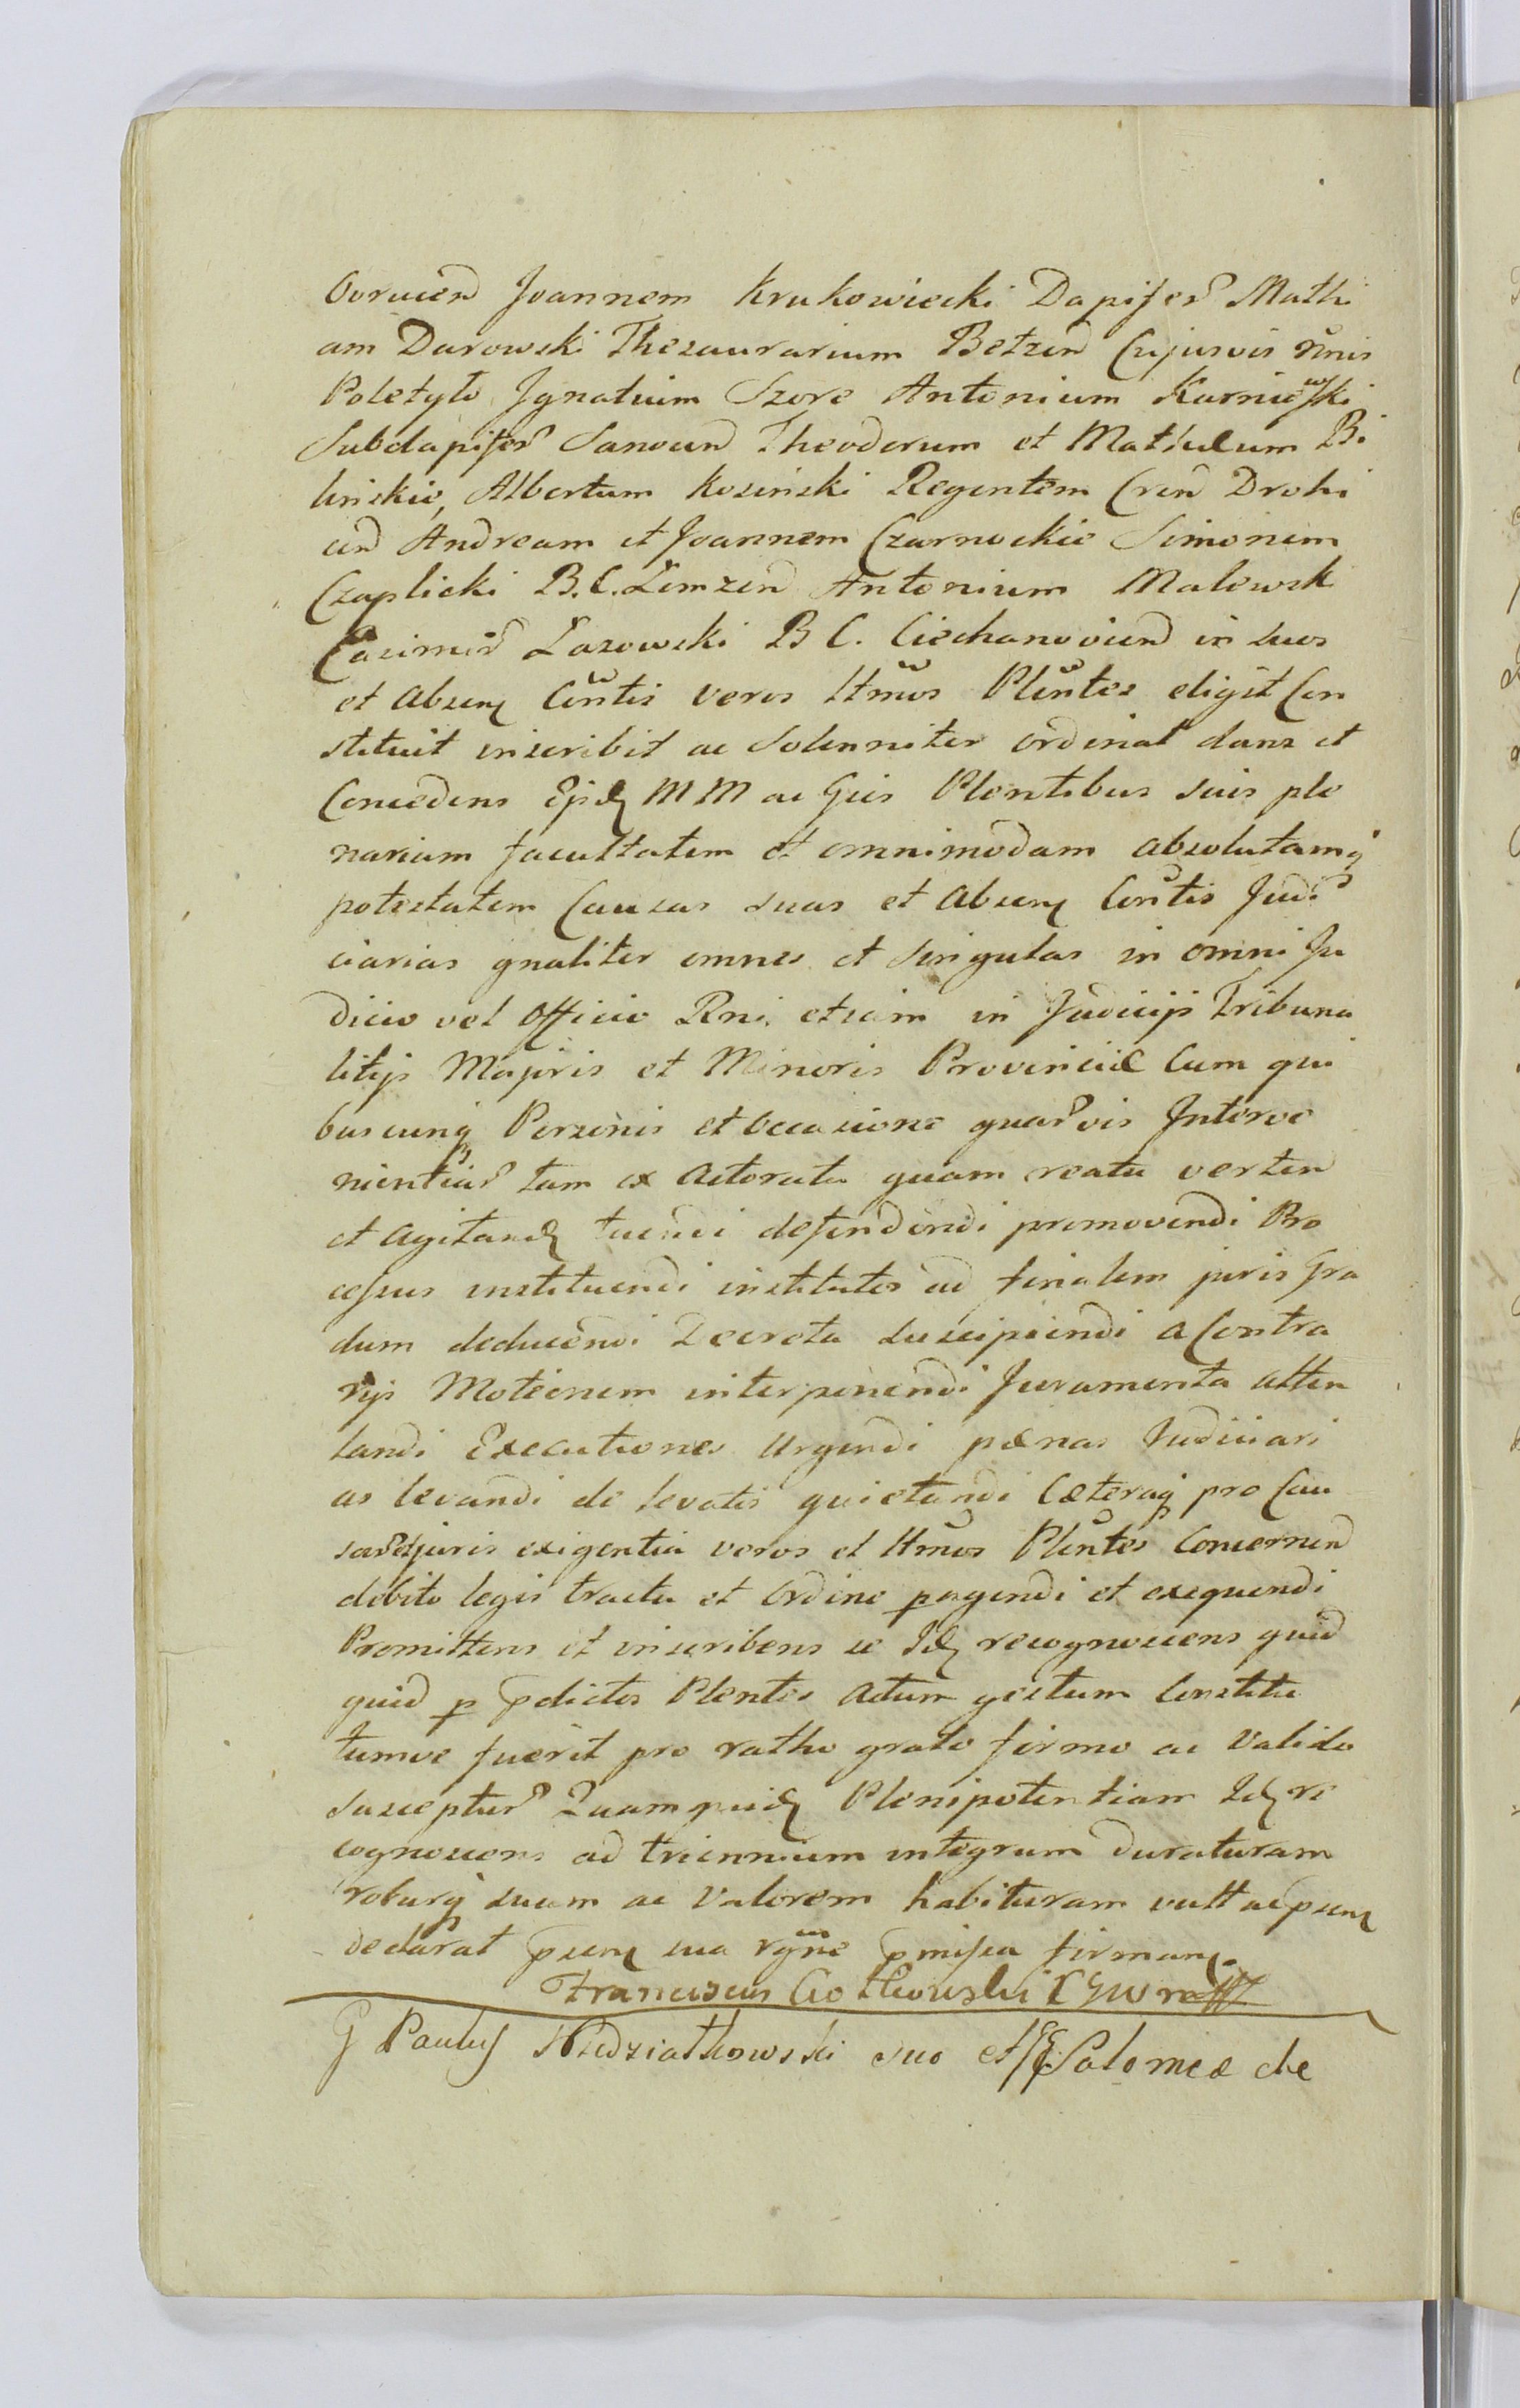 Ovrucen Joannem Krukowiecki Dapifer Mathi
am Darowski Thesaurarium Betzen Cujusvis nnis
Poletylo, Ignatium Szore Antonium Karniewski
Subdapifer Sanocen Theodorum et Mathæum Bi
linskie, Albertum Kosinski Regentem Cren Drohi
cen Andream et Joannem Czarnockie Simonem
Czaplicki B. C. Lomzen Antonium Malewsk
Casimir Lazowski B C. Ciechanovien in suos
et absenq Contis veros Ittmos Plentes eligit Con
stituit inscribit ac Solenniter ordinat dans et
Concedens Ejsdq M M ac Gsis Plentibus suis ple
nariam facultatem et omnimodam absolutamq
potestatem Causas suas et absenq Contis Judi
ciarias gnaliter omnes et singulas in omni Ju
dicio vel Officio Rni etiam in Judicijs Tribuna
litijs Majoris et Minoris Provinciæ Cum qui
buscunq Personis et occasione quarvis Interve
nientiar tam ex Actoratu quam reatu verten
et agitandq tuendi defendendi promovendi Pro
cessus instituendi institutos ad finalem juris Gra
dum deducendi Decreta suscipiendi a Contra
rijs Motionem interponendi Juramenta atten
tandi Executiones Urgendi pænas Judiciari
as levandi de levatis quietandi Cæteraq pro Cau
sar et juris exigentia veros et Ittmos Plentes Concernen
debito legis tractu et ordine pagendi et exequendi
Promittens et inscribens se Idq recognoscens quid
quid p pdictos Plentes Actum gestum Constitu
tumve fuerit pro ratho grato firmo ac Valido
suscepturq Quamquidq Plenipotentiam Idq re
cognoscens ad triennium integrum duraturam
roburq suum ac Valorem habituram vult ac psenq
declarat psenq sua rgne pmissa firmanq.
Franciscus Gotkowski
G Paulus Niedziatkowski suo et Salomeæ de